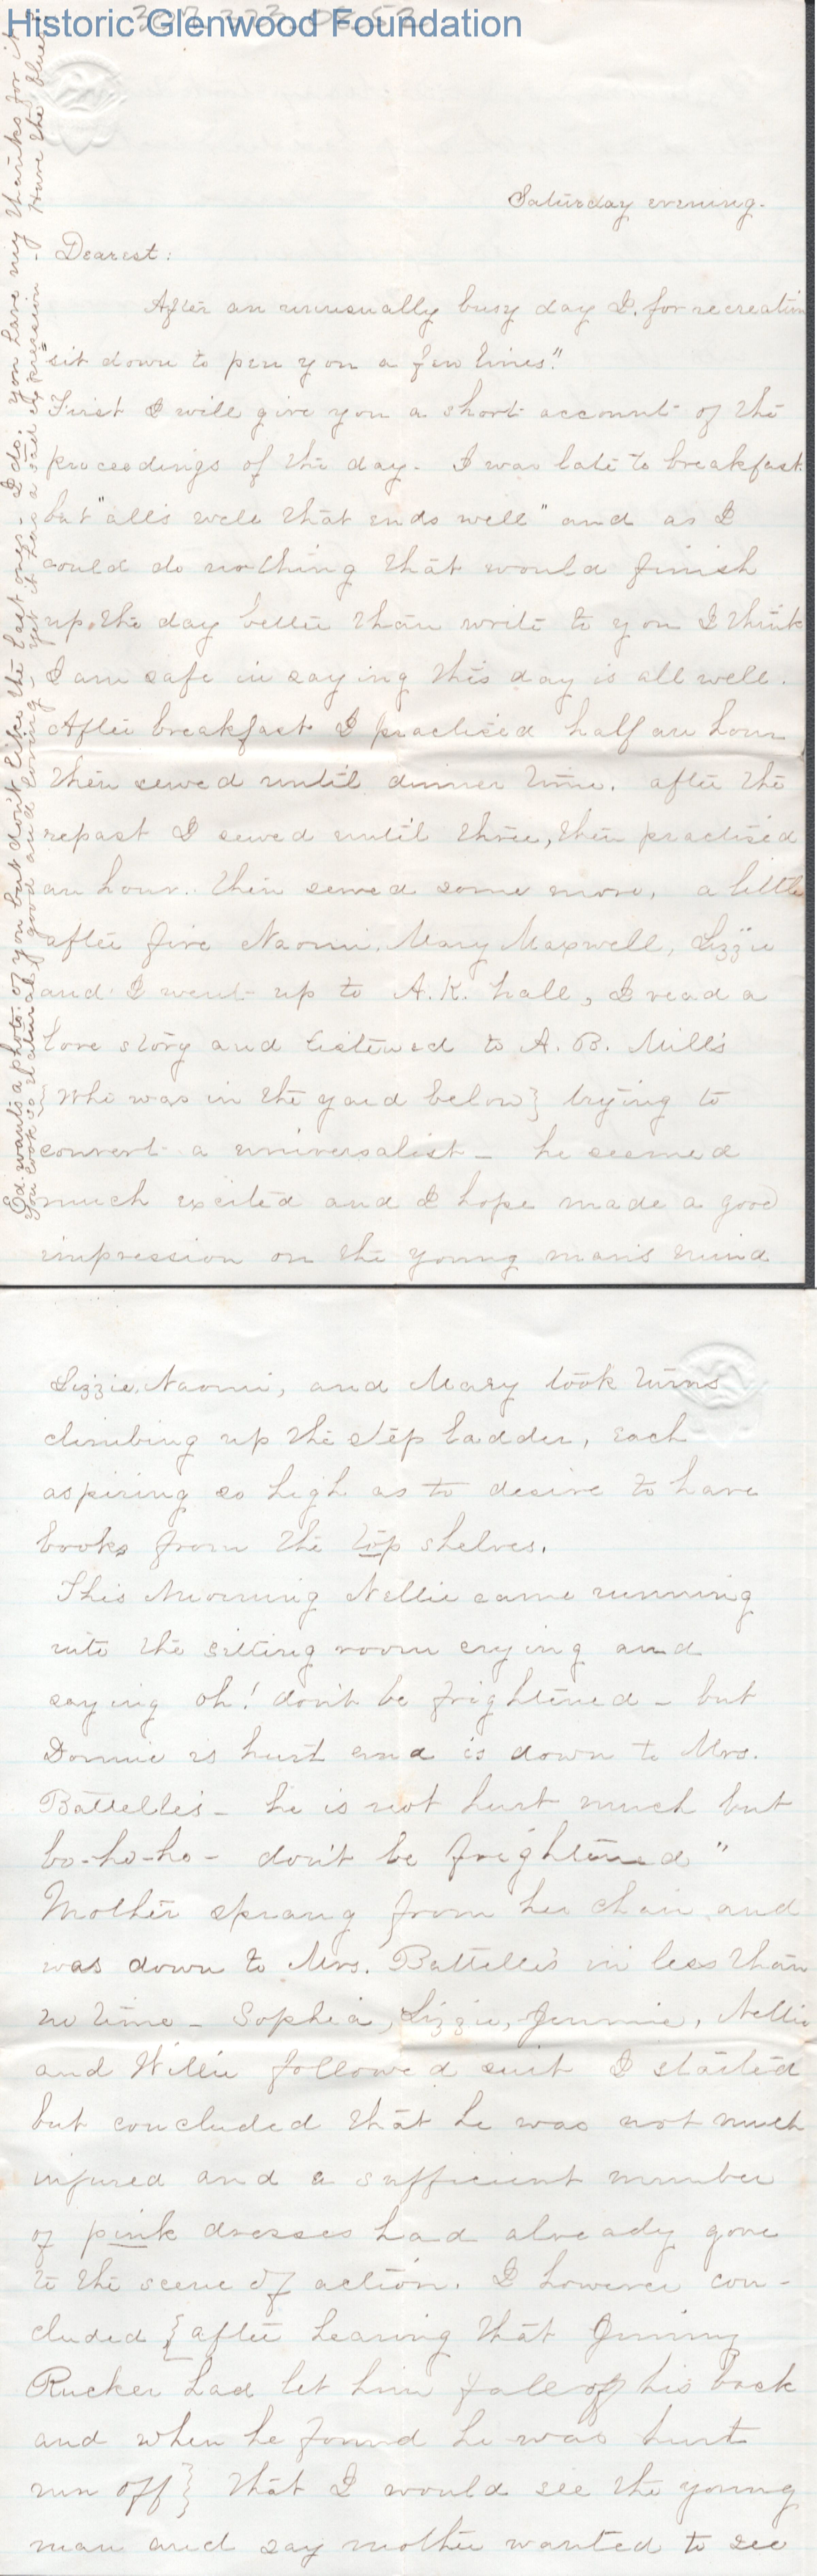 Historic Glenwood Foundation
Saturday evening.
Dearest:
After an unusually busy day I "for recreation
sit down to pen you a few lines."
First I will give you a short account of the
proceedings of the day. I was late to breakfast.
but "all's well that ends well" and as I
could do nothing that would finish
up the day better than write to you I think
I am safe in saying this day is all well.
After breakfast I practised half an hour
then sewed until dinner time. after the
repast I sewed until three, then practised
an hour. then sewed some more. a little
after five Naomi, Mary Maxwell, Lizzie
and I went up to A.K. hall, I read a
love story and listened to A. B. Mills
{who was in the yard below} trying to
convert a universalist - he seemed
much excited and I hope made a good
impression on the young man's mind
Ed. wants a photo. of you but don't like the last ones - I do. you have my thanks for it
You look so natural, good and loving - yet it has a sad expression. Have the blues
Lizzie, Naomi, and Mary took turns
climbing up the step ladder, each
aspiring so high as to desire to have
books from the top shelves.
This Morning Nellie came running
into the sitting room crying and
saying oh! don't be frightened - but
Donnie is hurt and is down to Mrs.
Battelle's - he is not hurt much but
bo-ho-ho - don't be frightened"
Mother sprang from her chair and
was down to Mrs. Battelle's in less than
no time - Sophia, Lizzie, Jennie, Nellie
and Willie followed suit I started
but concluded that he was not much
injured and a sufficient number
of pink dresses had already gone
to the scene of action. I however con-
cluded {after hearing that Jimmy
Rucker had let him fall off his back
and when he found he was hurt
run off} that I would see the young
man and say mother wanted to see